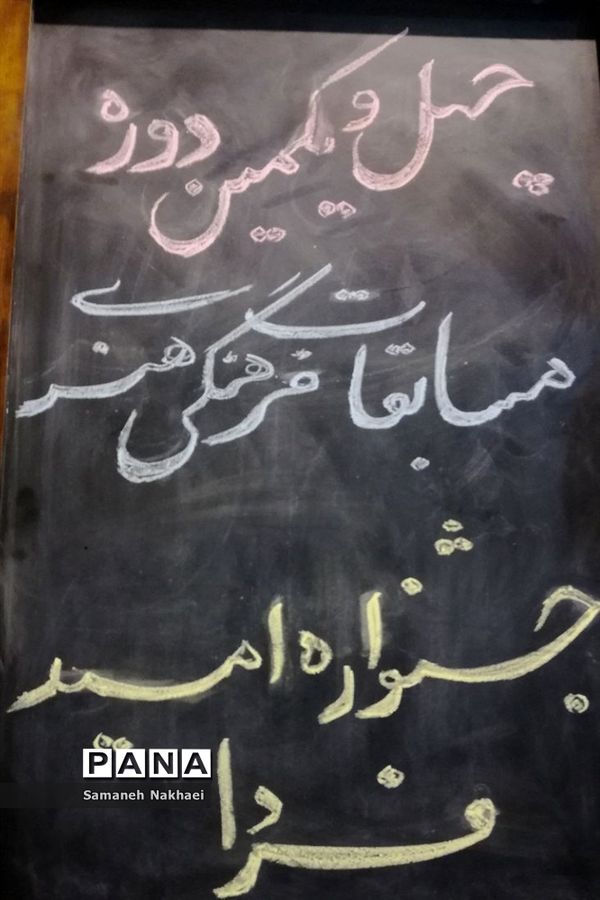 چهل و یکمین دوره
مسابقات فرهنگی هنری
جشنواره امید
فردا
PANA
Samaneh Nakhaei